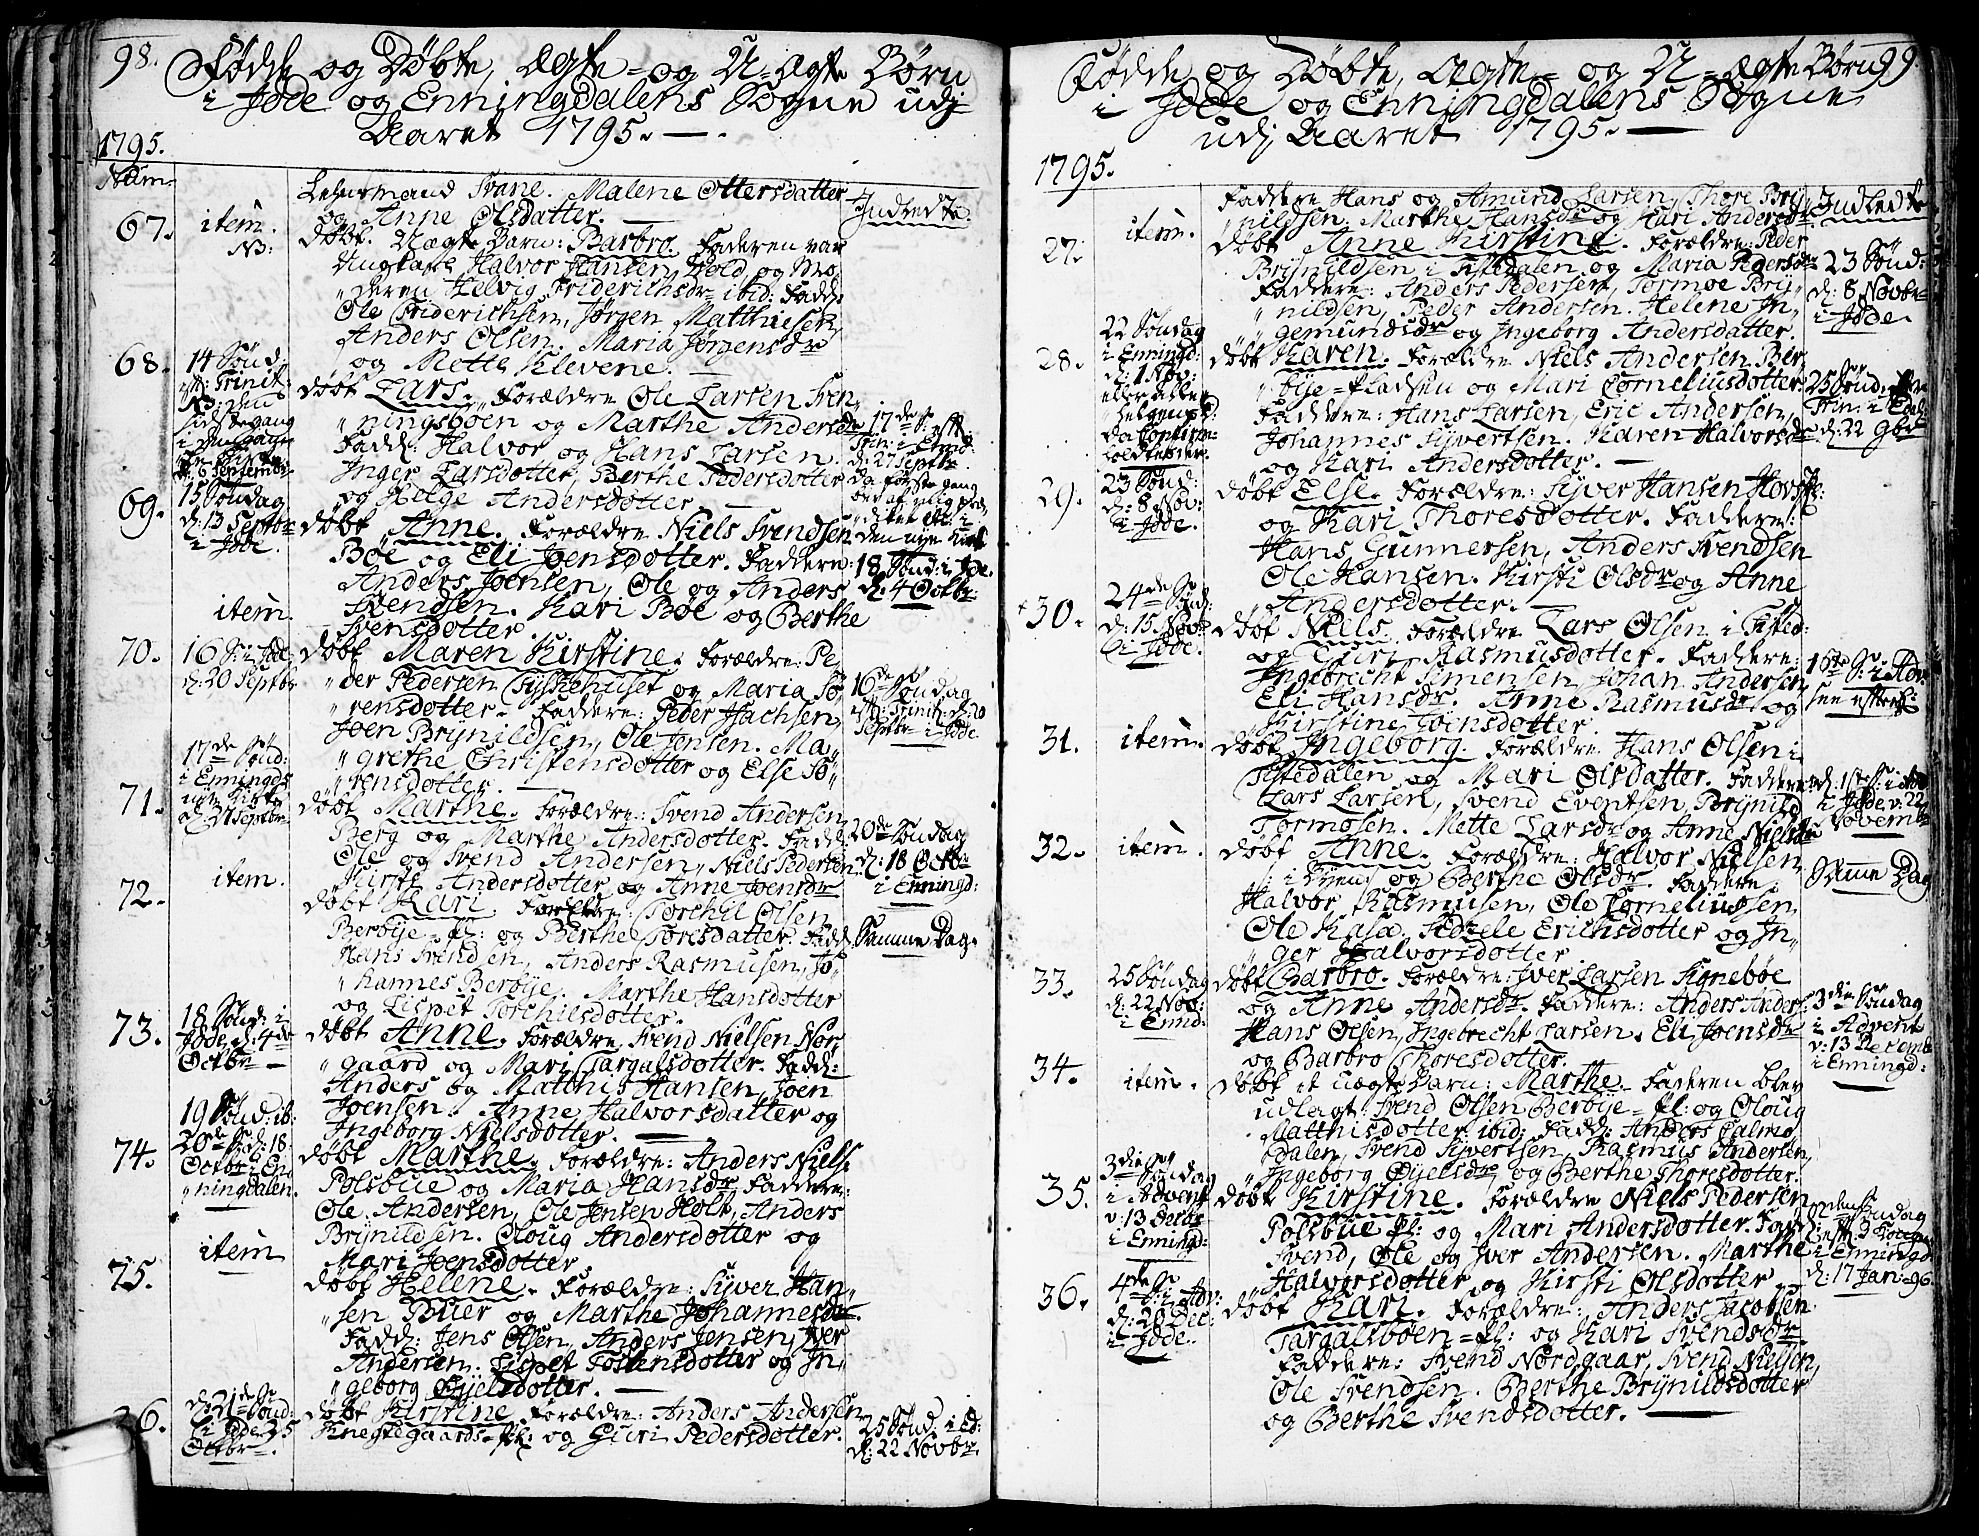 98. Fødde og Døbte, Ægte- og U-Ægte Børn
i Idde og Enningdalens Sogne udj
Aaret 1795.
1795.
Num.
Lehnsmand Svane. Malene Ottersdatter
og Anne Olsdatter.
Indledte.
67. item. NB: døbt. Uægte Barn: Barbro. Faderen var
Ungkarl Halvor Hansen Hold, og Mo,
"deren Helvig Friderichsdr ibid: Fadd:
Ole Friderichsen, Jørgen Matthiesen,
Anders Olsen. Maria Jørgensdr
og Mette Klevene.
68. 14 Sønd:
eft: Trinit:
døbt Lars. Forældre Ole Larsen Sven,
"ningsboen og Marthe Andersdr
Fadd: Halvor og Hans Larsen.
Inger Larsdotter, Berthe Pedersdotter
og Helge Andersdotter
17de S. eft:
Trin: i Ennd:
d: 27 Septbr
69. 15 Søndag
d: 13 Septbr
i Idde.
døbt Anne. Forældre Niels Svendsen
Boe og Eli Joensdotter. Faddere:
Anders Joensen, Ole og Anders
Svendsen. Kari Boe og Berthe
Svensdotter
18 Sønd: i Idde.
d: 4 Octbr:
item.
70. 16 S: i Idde
d: 20 Septbr
døbt Maren Kirstine. Forældre: Pe,
"der Pedersen Tyskehuset og Maria Sø,
"rensdotter. Faddere: Peder Isachsen,
Joen Brynildsen, Ole Jensen. Ma,
"grethe Christensdotter og Else Sø,
"rensdotter.
16de Søndag
eft: Trinit: d: 20
Septbr i Idde.
71. 17de Sønd:
i Enningds
nye Kirke
d: 27 Septbr
døbt Marthe. Forældre: Svend Andersen
Berg og Marthe Andersdotter. Fadd:
Ole og Svend Andersen, Niels Pedersen.
Kirsti Andersdotter og Anne Joensdr
20de Søndag
d: 18 Octbr
i Enningd:
72. item.
døbt Kari. Forældre: Torchil Olsen
Berbye-pl: og Berthe Toresdatter. Fadd:
Hans Svendsen, Anders Rasmusen, Jo,
"hannes Berbye. Marthe Hansdotter
og Lispet Torchilsdotter.
Samme Dag.
73. 18 Sønd: i
Idde, d: 4de
Octbr
døbt Anne. Forældre Svend Nielsen Nor,
"gaard og Mari Targalsdotter. Fadd:
Anders og Matthis Hansen, Joen
Joensen. Anne Halvorsdatter og
Ingeborg Nielsdotter.
19 Sønd: ib:
74. 20de S: d: 18
Octbr i En,
"ningdalen.
døbt Marthe. Forældre: Anders Niels:
Polsboe og Maria Hansdr Faddere:
Ole Andersen, Ole Jensen Holt, Anders
Brynildsen. Oloug Andersdotter og
Mari Joensdotter.
75. item
døbt Helene. Forældre: Syver Han,
"sen Buer og Marthe Johannesdr.
Fadd: Jens Olsen, Anders Jensen, Iver
Andersen. Lispet Tostensdotter og In,
"geborg Eyelsdotter.
76. d: 21de
Sønd:
i Idde, 25
Octbr.
døbt Kirstine. Forældre: Anders Andersen
Knegtegaards-pl: og Guri Pedersdotter.
25 Sønd. i Ed:
d: 22 Novbr.
Fødde og Døbte, Ægte- og U-Ægte Børn 99.
i Idde og Enningdalens Sogne
udj Aaret 1795.
1795.
Faddere Hans og Amund Larsen, Thore Bry,
"nildsen. Marthe Hansdr og Guri Andersdr
Indledte
27. item.
døbt Anne Kirstine. Forældre: Peder
Brynildsen i Tistedalen og Maria Pedersdr
Faddere: Anders Pedersen, Tormoe Bry,
"nildsen, Peder Andersen. Helene In,
"gemundsdr og Ingeborg Andersdatter.
23 Sønd:
d: 8 Novbr
i Idde.
28. 22 Søndag
i Enningd:
d: 1 Nov:
døbt Karen. Forældre Niels Andersen Ber,
"bye-Pladsen og Mari Corneliusdotter
Faddere: Hans Larsen, Eric Andersen,
Johannes Syvertsen. Karen Halvorsdr
og Kari Andersdotter.
25 Sønd:
Trin:
d: 22 9br
29. 23 Sønd:
d: 8 Nov:
i Idde.
døbt Else. Forældre: Syver Hansen
og Kari Thoresdotter. Faddere:
Hans Gunnersen, Anders Svendsen
Ole Hansen. Kirsti Olsdr og Anne
Andersdotter.
30. 24de Sønd:
d: 15 Nov:
i Idde.
døbt Niels. Forældre Lars Olsen i Tisted:
og Guri Rasmusdotter. Faddere:
Ingebrecht Simensen, Johan Andersen,
Eli Hansdr. Anne Rasmusdr og
Kirstine Joensdotter.
31. item.
døbt Ingeborg. Forældre: Hans Olsen i
Tistedalen og Mari Olsdatter. Faddere
Lars Larsen, Svend Eventsen, Brynild
Tormosen. Mette Larsdr og Anne Nielsdr
i Idde, v: 22
Novembr
32. item.
døbt Anne. Forældre: Halvor Nielsen
i Byen og Berthe Olsdr Faddere
Halvor Rasmusen, Ole Corneliussen,
Ole Kasa. Edzele Erichsdotter og In,
"ger Halvorsdotter
Samme Dag
33. 25 Søndag
d: 22 Nov:
i Ennd:
døbt Barbro. Forældre: Iver Larsen Signebøe
og Anne Andersdr. Faddere: Anders Anders:
Hans Olsen, Ingebrecht Larsen. Eli Joensdr
og Barbro Thoresdotter.
3die Søndag
i Advent
v: 13 Decemb
i Enningd:
34. item.
døbt et uægte Barn: Marthe. Faderen blev
udlagt: Svend Olsen Berbye-pl: og Oloug
Matthisdotter ibid: Fadd: Anders Calmo
dalen, Svend Syvertsen, Rasmus Andersen,
Ingeborg Eyelsdr og Berthe Thoresdotter.
35. 3die Søndag
i Advent
v: 13 Decbr
i Enningd:
døbt Kirstine. Forældre Niels Pedersen
Polsboe pl: og Mari Andersdotter. Fadd:
Svend, Ole og Iver Andersen. Marthe
Halvorsdotter og Kirsti Olsdotter
Søndag
i Enningd
d: 17 Jan: 96.
36. 4de S: i Adv:
d: 20 Dec:
i Idde.
døbt Kari. Forældre: Anders Jacobsen
Targalsboen-pl: og Kari Svendsdr
Faddere: Svend Nordgaar, Svend Nielsen,
Ole Svendsen. Berthe Brynildsdotter
og Berthe Svendsdotter.